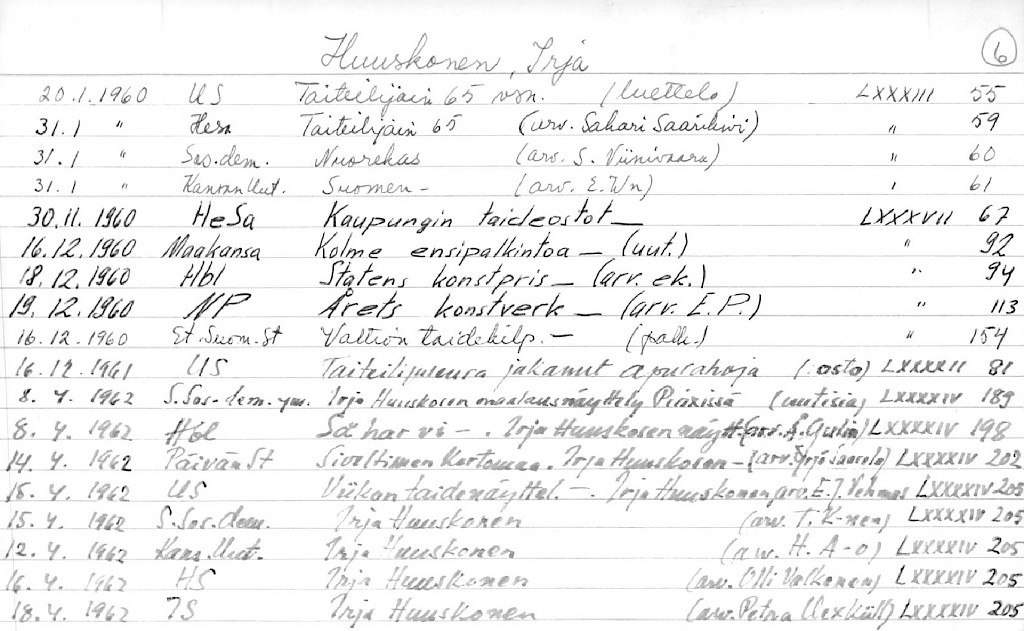 Huuskonen, Irja 6
20.1.1960 US Taiteilijain 65 vsn. (luettelo) LXXXIII 55
31.1 " Hesa Taiteilijain 65 (arv. Sakari Saarikivi) " 59
31.1 " Sos.dem. Nuorekas (arv. S. Viinivaara) " 60
31.1 " Kansan Uut. Suomen - (arv. E. Wn) " 61
30.11.1960 HeSa Kaupungin taideostot — LXXXVII 67
16.12.1960 Maakansa Kolme ensipalkintoa — (uut.) " 92
18.12.1960 Hbl Statens konstpris — (arv. ek.) " 94
19.12.1960 NP Årets konstverk — (arv. E.P.) " 113
16.12.1960 Et.Suom.St Valtion taidekilp. — (palk.) " 154
16.12.1961 US Taiteilijaseura jakanut apurahoja (osto) LXXXXII 81
8.4.1962 S.Sos-dem. Irja Huuskosen maalausnäyttely Pinxissä (uutisia) LXXXXIV 189
8.4.1962 Hbl Så har vi - . Irja Huuskosen näytt. (arv. Å. Gulin) LXXXXIV 198
14.4.1962 Päivän St Siveltimen kertomaa. Irja Huuskosen - (arv. Yrjö Saarelo) LXXXXIV 202
15.4.1962 US Viikon taidenäyttel. -. Irja Huuskonen arv. E.J. Vehmas LXXXXIV 205
15.4.1962 S.Sos.dem. Irja Huuskonen (arv. T. K-nen) LXXXXIV 205
12.4.1962 Kans.Uut. Irja Huuskonen (arv. H. A-o) LXXXXIV 205
16.4.1962 HS Irja Huuskonen (arv. Olli Valkonen) LXXXXIV 205
18.4.1962 IS Irja Huuskonen (arv. Petra Uexküll) LXXXXIV 205